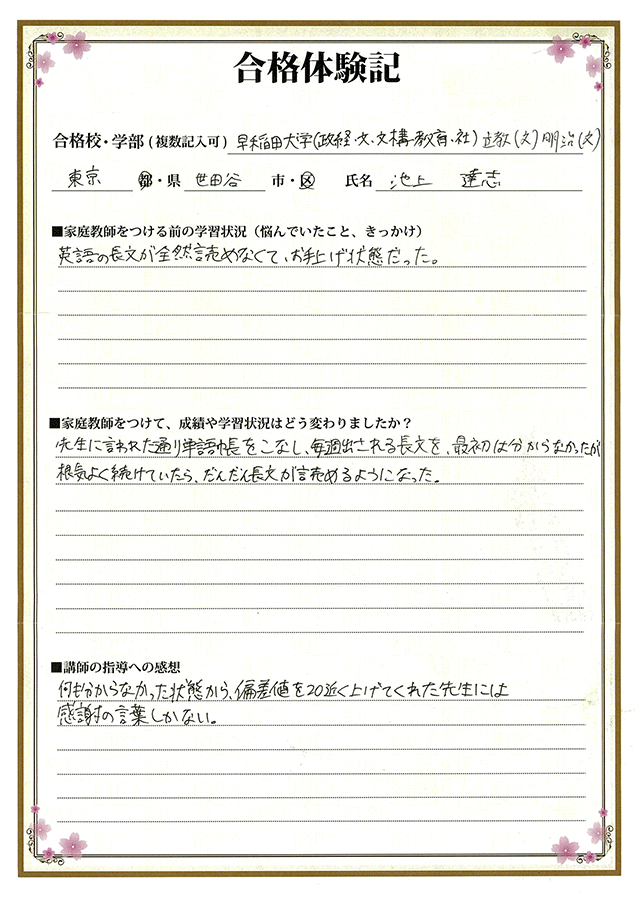 合格体験記
合格校・学部(複数記入可) 早稲田大学(政経・文・文構・教育・社) 立教(文) 明治(文)
東京 都・県 世田谷 市・区 氏名 池上 達志
■家庭教師をつける前の学習状況(悩んでいたこと、きっかけ)
英語の長文が全然読めなくて、お手上げ状態だった。
■家庭教師をつけて、成績や学習状況はどう変わりましたか?
先生に言われた通り単語帳をこなし、毎週出される長文を、最初は分からなかったが
根気よく続けていたら、だんだん長文が読めるようになった。
■講師の指導への感想
何も分からなかった状態から、偏差値を20近く上げてくれた先生には
感謝の言葉しかない。